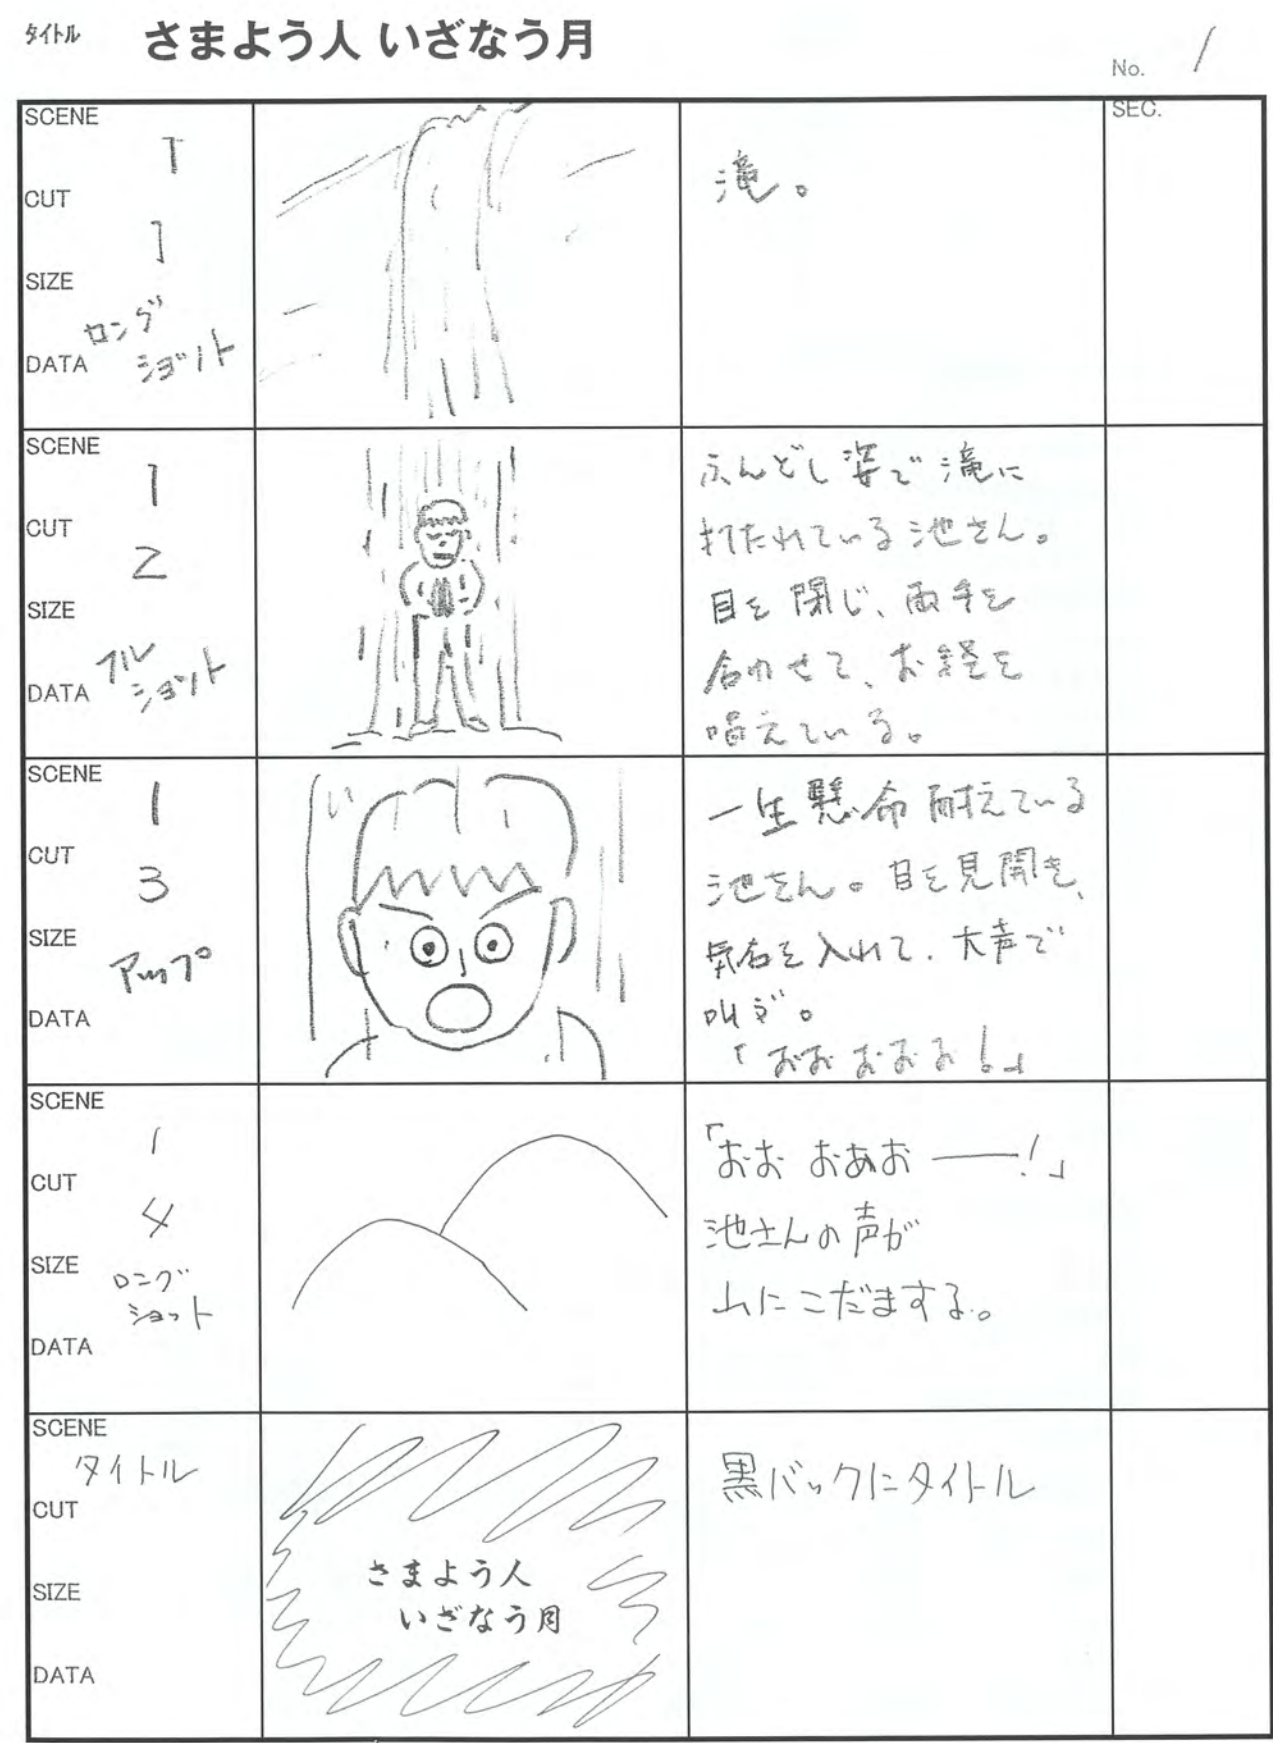 タイトル
さまよう人 いざなう月
No. 1
SCENE
1
CUT
1
SIZE
ロング
ショット
DATA
滝。
SEC.
SCENE
1
CUT
2
SIZE
フル
ショット
DATA
ふんどし姿で滝に
打たれている池さん。
目を閉じ、両手を
合わせて、お経を
唱えている。
SCENE
1
CUT
3
SIZE
アップ
DATA
一生懸命耐えている
池さん。目を見開き、
気合を入れて、大声で
叫ぶ。
「おおおおお!」
SCENE
1
CUT
4
SIZE
ロング
ショット
DATA
「おお おあお ——!」
池さんの声が
山にこだまする。
SCENE
タイトル
CUT
SIZE
DATA
さまよう人
いざなう月
黒バックにタイトル